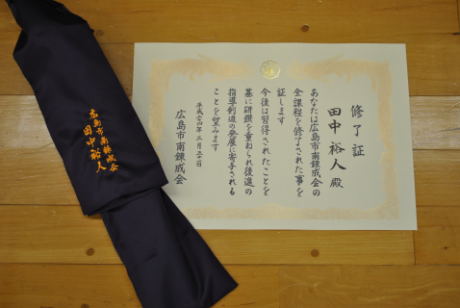 修了証
田中裕人殿
あなたは広島市南錬成会の
全課程を修了された事を
証します
今後は習得されたことを
基に研鑽を重ねられ後進の
指導剣道の発展に寄与される
ことを望みます
平成二四年三月二十日
広島市南錬成会
広島市南錬成会
田中裕人